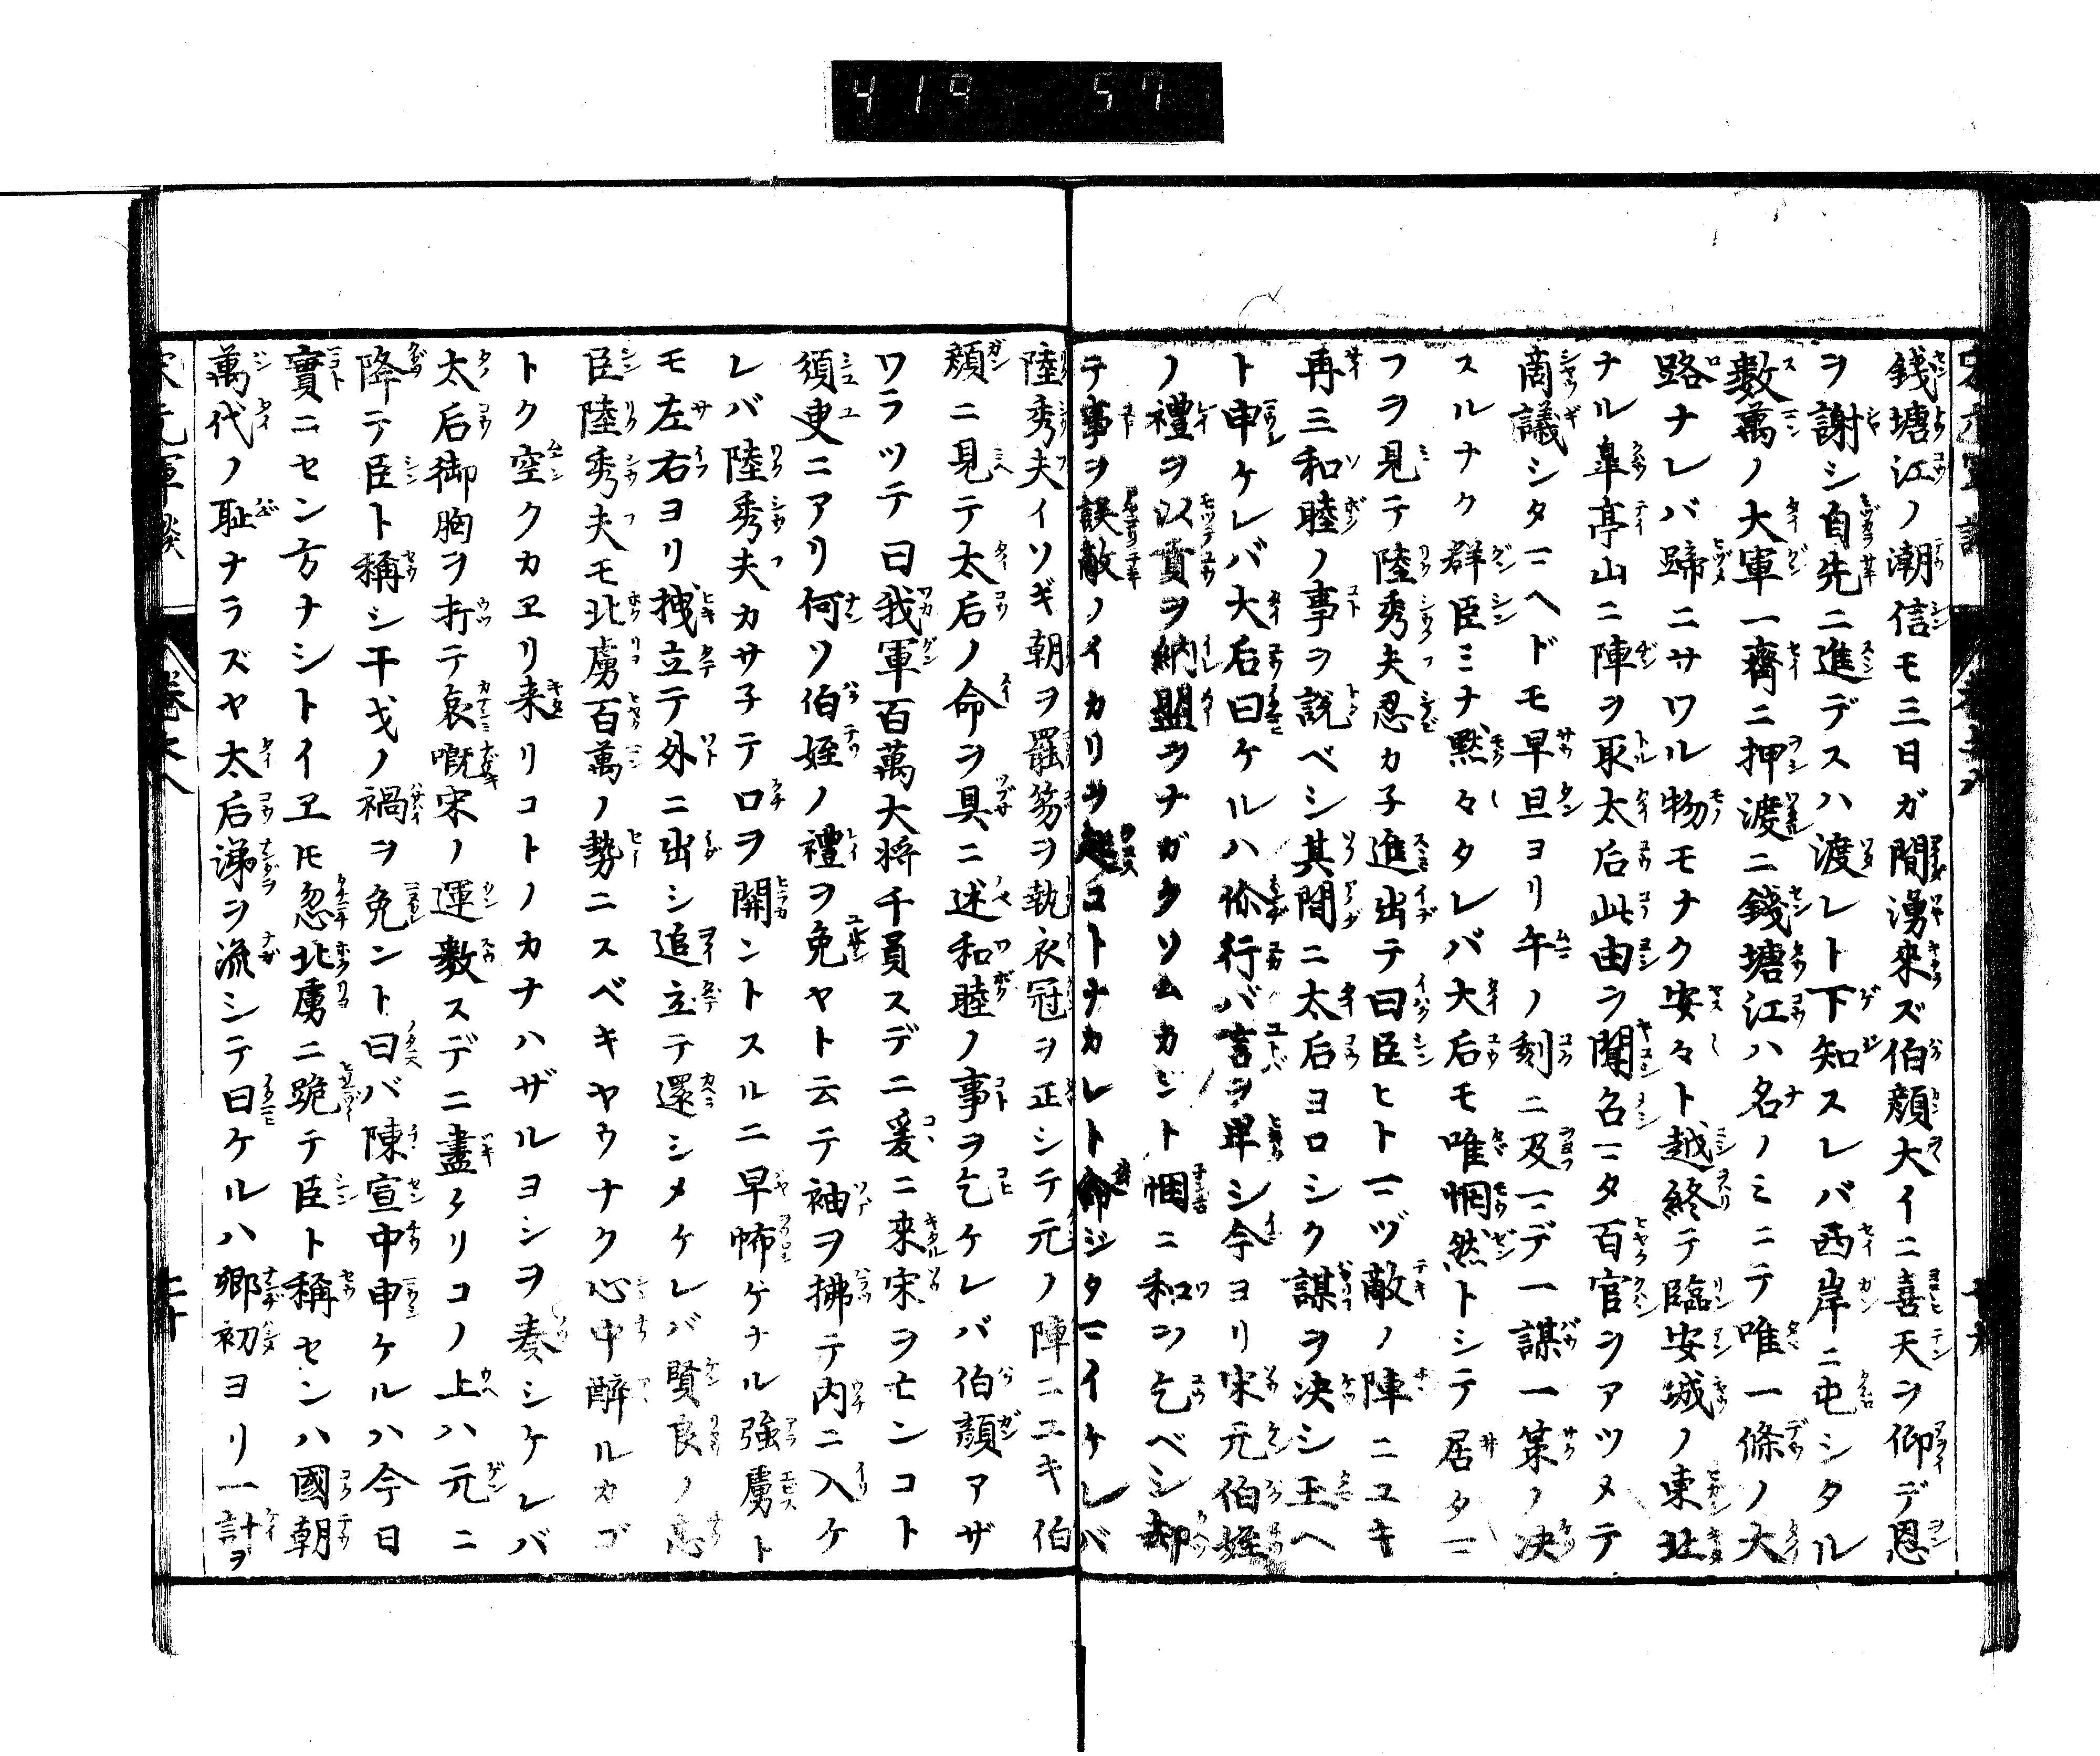 419 57
錢塘江ノ潮信モ三日ガ間湧來ズ伯顏大イニ喜天ヲ仰デ恩
ヲ謝シ自先ニ進デスハ渡レト下知スレバ西岸ニ屯シタル
數萬ノ大軍一齊ニ押渡ニ錢塘江ハ名ノミニテ唯一條ノ大
路ナレバ蹄ニサワル物モナク安々ト越終テ臨安城ノ東北
ナル皐亭山ニ陣ヲ取太后此由ヲ聞召マタ百官ヲアツメテ
商議シタマヘドモ早旦ヨリ午ノ刻ニ及マデ一謀一策ノ决
スルナク群臣ミナ黙々タレバ大后モ唯惘然トシテ居タマ
フヲ見テ陸秀夫忍カ子進出テ曰臣ヒトマヅ敵ノ陣ニユキ
再三和睦ノ事ヲ説ベシ其間ニ太后ヨロシク謀ヲ决シ玉ヘ
ト申ケレバ大后曰ケルハ你行バ言ヲ卑シ今ヨリ宋元伯姪
ノ禮ヲ以貢ヲ納盟ヲナガクソムカジト惘ニ和ヲ乞ベシ却
テ事ヲ誤敵ノイカリヲ起コトナカレト命ジタマイケレバ
陸秀夫イソギ朝ヲ罷笏ヲ執衣冠ヲ正シテ元ノ陣ニユキ伯
顏ニ見テ太后ノ命ヲ具ニ述和睦ノ事ヲ乞ケレバ伯顏アザ
ワラツテ曰我軍百萬大將千員スデニ爰ニ來宋ヲ亡ンコト
須臾ニアリ何ソ伯姪ノ禮ヲ免ヤト云テ袖ヲ拂テ内ニ入ケ
レバ陸秀夫カサ子テ口ヲ開ントスルニ早怖ゲナル強虜ト
モ左右ヨリ拽立テ外ニ出シ追立テ還シメケレバ賢良ノ忠
臣陸秀夫モ北虜百萬ノ勢ニスベキヤウナク心中醉ルカゴ
トク空クカヱリ来リコトノカナハザルヨシヲ奏シケレバ
太后御胸ヲ打テ哀嘅宋ノ運數スデニ盡タリコノ上ハ元ニ
降テ臣ト稱シ干戈ノ禍ヲ免ント曰バ陳宣中申ケルハ今日
實ニセン方ナシトイヱ圧忽北虜ニ跪テ臣ト稱センハ國朝
萬代ノ恥ナラズヤ太后涕ヲ流シテ曰ケルハ卿初ヨリ一計ヲ